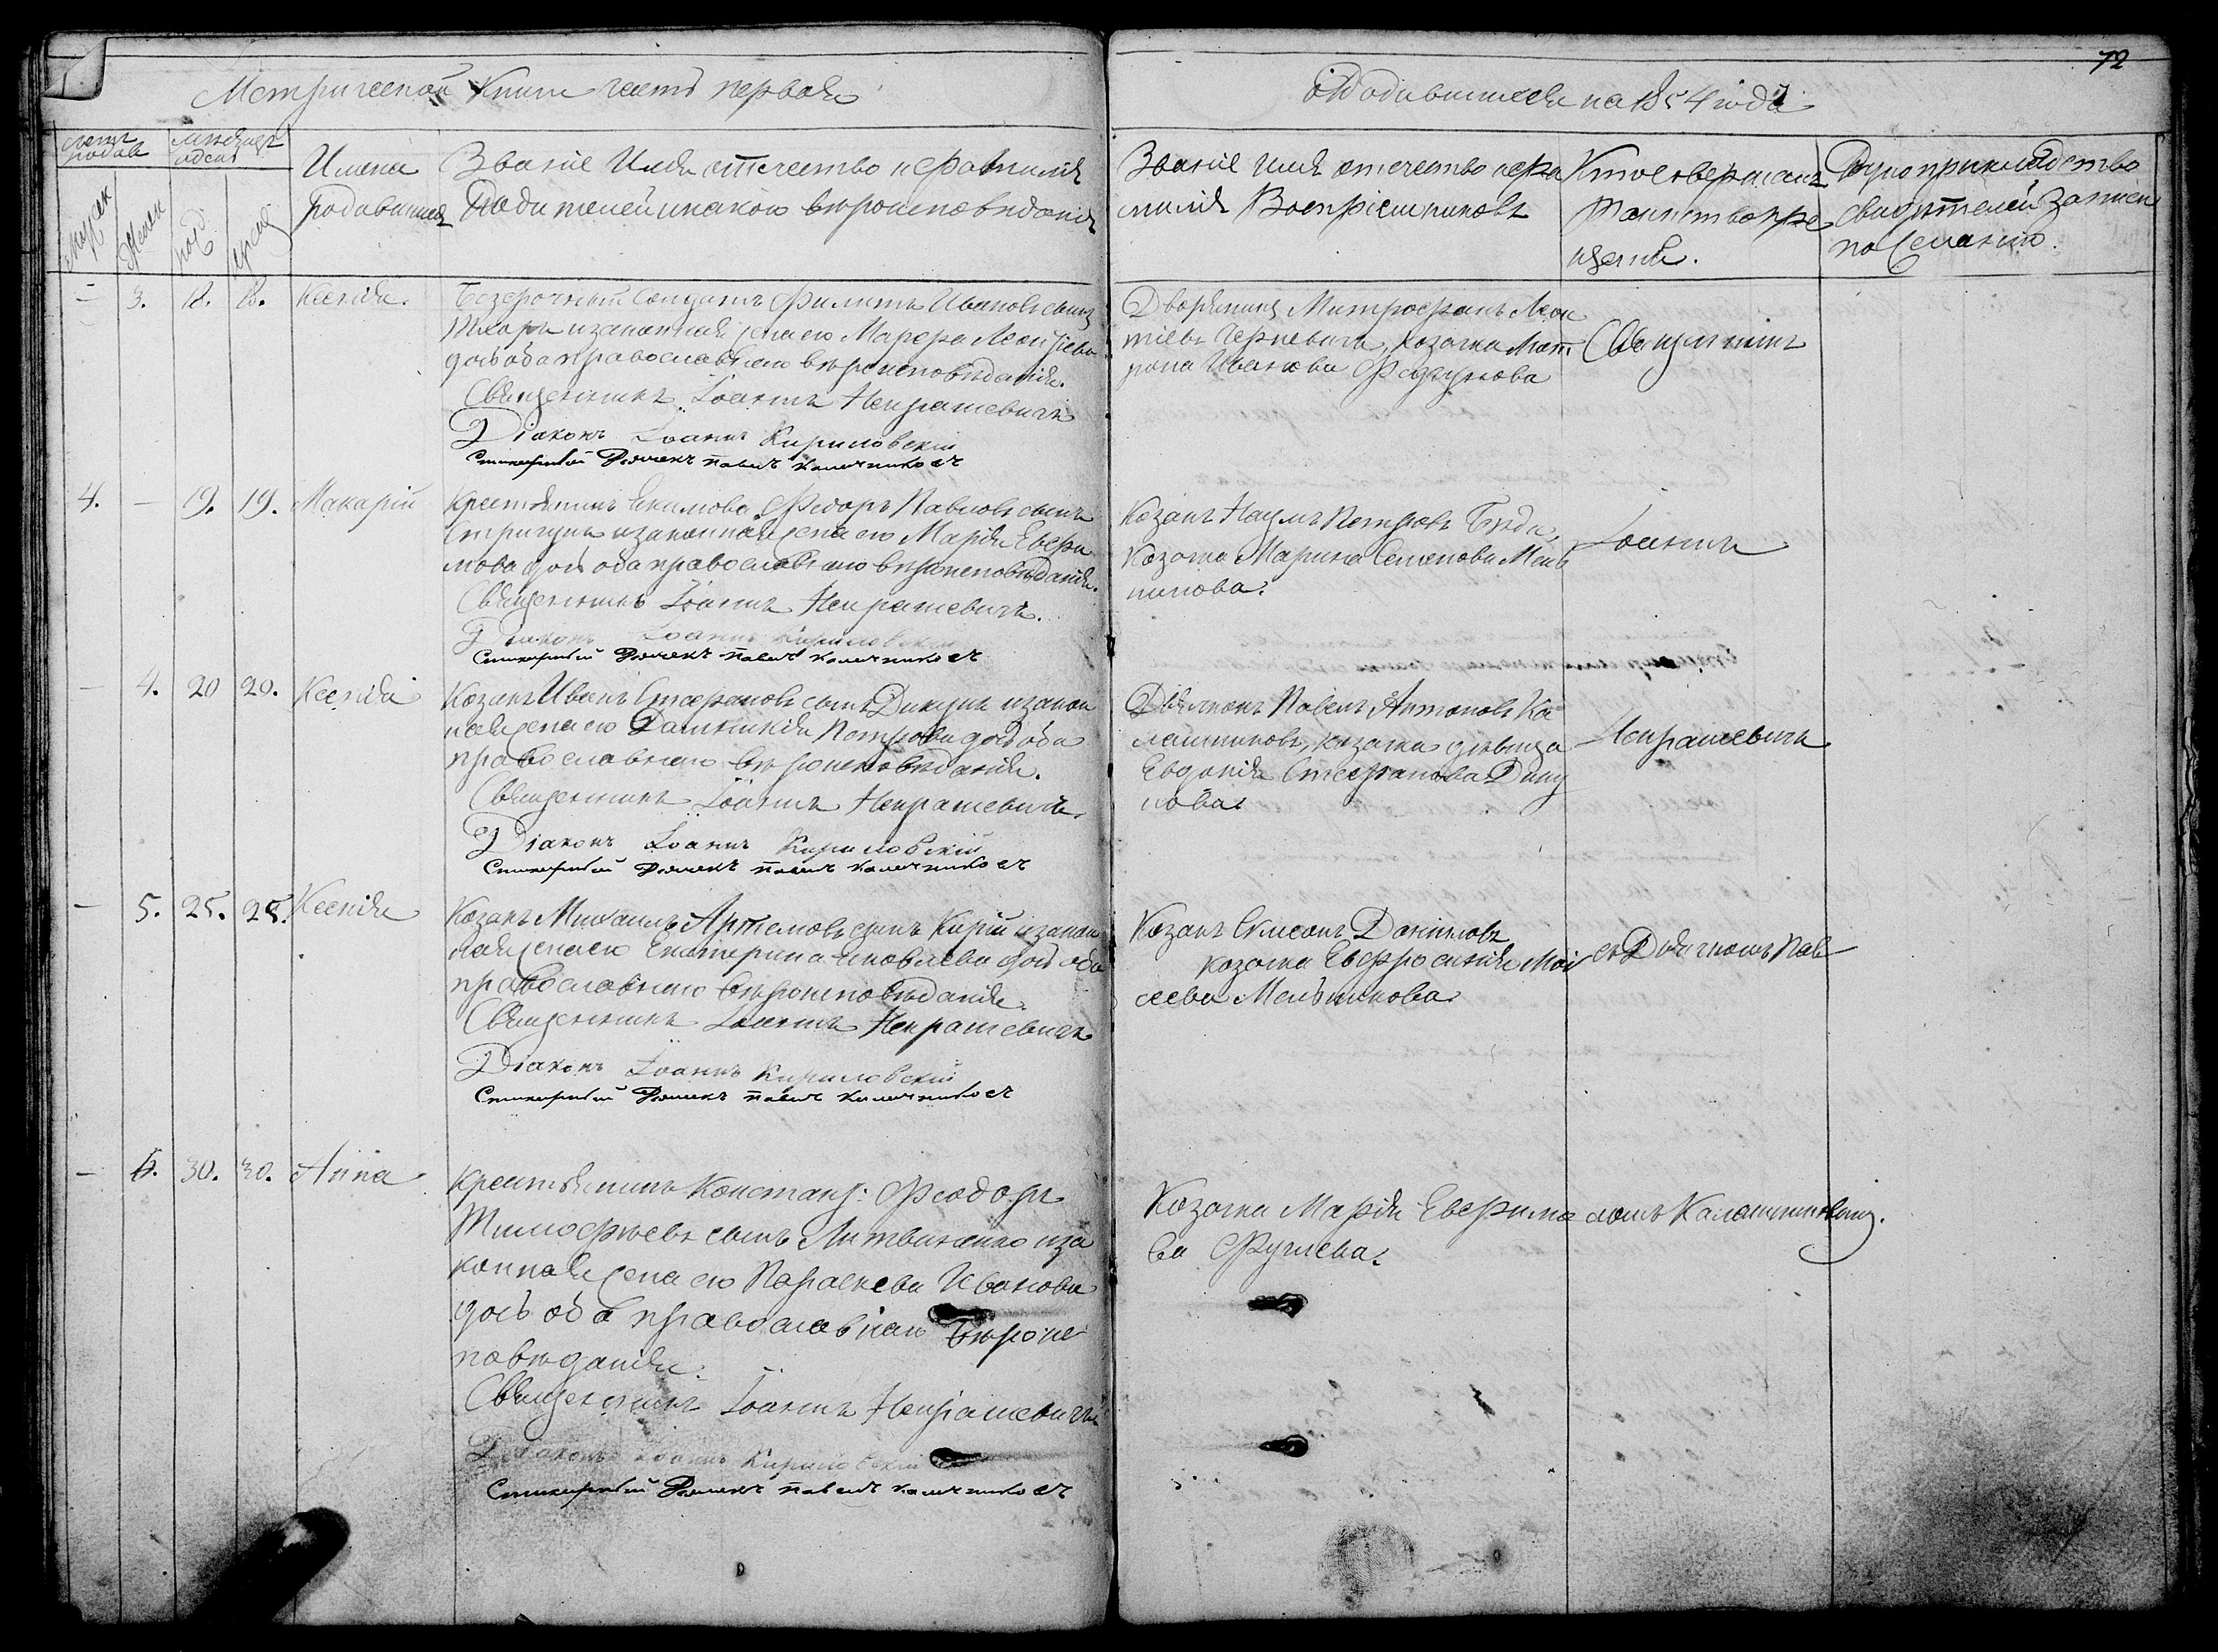 72
Метрической Книги часть первая
о Родившихся на 1854 годъ
счетъ родив
Мужск
Женск
месяцъ и день
рожд
крещ
Имена
родившихся
Званіе Имя отечество и фамилія
Родителей и какого вѣроисповѣданія
Званіе имя отечество и фа
милія Воспріемниковъ
Кто совершалъ
таинство кре
щенія.
Рукоприкладство
свидѣтелей записи
по желанію.
3.
Ксенія.
Безсрочный Солдатъ Филипъ Ивановъ сынъ
и законная жена его Марфа Леонтіева
дочь оба православнаго вѣроисповѣданія.
Священникъ Іоаннъ Некрашевичъ
Діаконъ Іоаннъ Кириловскій
Стихарный Дьячекъ Павелъ Калашниковъ
Дворянинъ Митрофанъ Леон
тіевъ Черневичъ, козачка Мат
рона Иванова
Священникъ
4. — 19. 19. Макарій
Крестьянинъ Екимова Федоръ Павловъ сынъ
Стригунъ и законная жена его Марія Евфи
мова дочь оба православнаго вѣроисповѣданія.
Священникъ Іоаннъ Некрашевичъ.
Діаконъ Іоаннъ Кириловскій
Стихарный Дьячекъ Павелъ Калашниковъ
Козакъ Наумъ Петровъ Бѣда,
Козачка Марина Семенова Мель
никова.
Іоаннъ
— 4. 20 20. Ксенія
Козакъ Иванъ Стефановъ сынъ Дикунъ и закон
ная жена его Домникія Петрова дочь оба
православнаго вѣроисповѣданія.
Священникъ Іоаннъ Некрашевичъ.
Діаконъ Іоаннъ Кириловскій
Стихарный Дьячекъ Павелъ Калашниковъ
Дьячокъ Павелъ Антоновъ Ка
лашниковъ, козачка дѣвица
Евдокія Стефанова Дику
нова
Некрашевичъ
— 5. 25. 25. Ксенія
Козакъ Михаилъ Артемовъ сынъ Кирій и закон
ная жена его Екатерина Яковлева дочь оба
православнаго вѣроисповѣданія.
Священникъ Іоаннъ Некрашевичъ
Діаконъ Іоаннъ Кириловскій
Стихарный Дьячекъ Павелъ Калашниковъ
Козакъ Симеонъ Даниловъ
козачка Евфросинія Мои
сеева Мельникова
съ Дьячкомъ Пав
— 6. 30. 30. Анна
Крестьянинъ Констант: Феодоръ
Тимофѣевъ сынъ Литвиненко и за
конная жена его Параскева Иванова
дочь оба православнаго вѣроис
повѣданія.
Священникъ Іоаннъ Некрашевичъ
Діаконъ Іоаннъ Кириловскій
Стихарный Дьячекъ Павелъ Калашниковъ
Козачка Марія Евфимо
ва
ломъ Калашниковымъ.